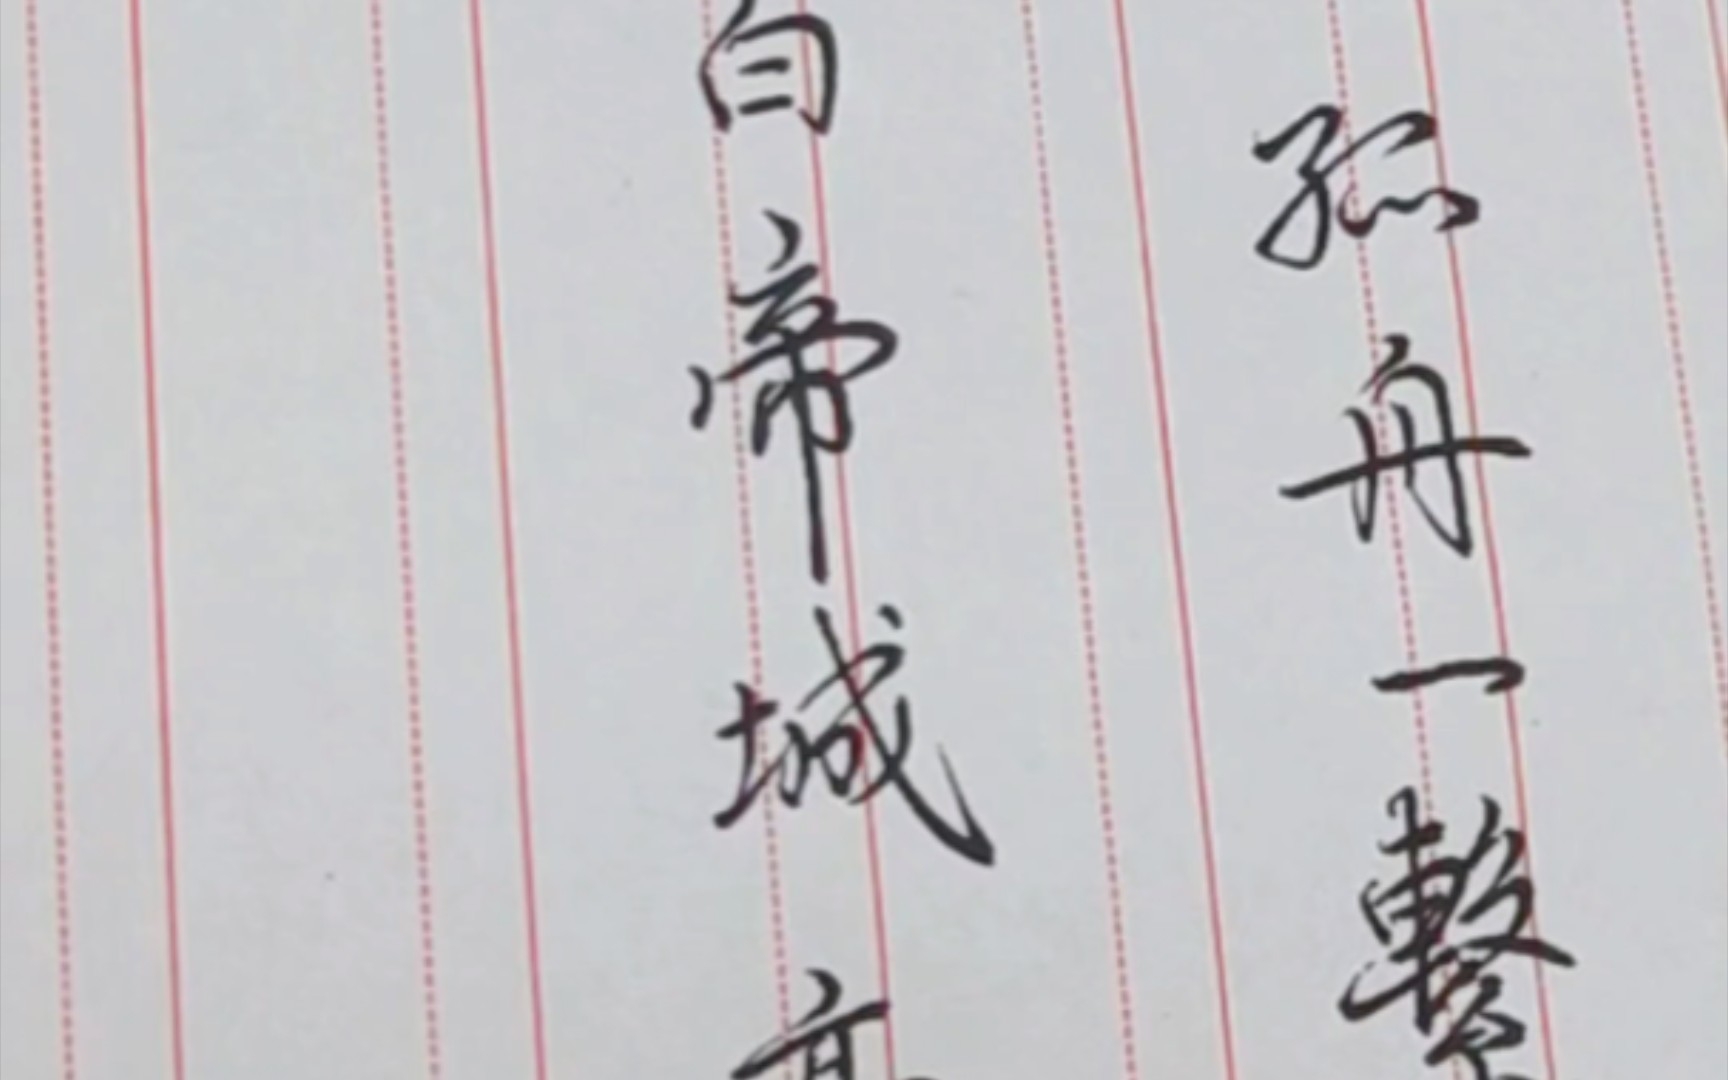 孤舟一繫
白帝城高